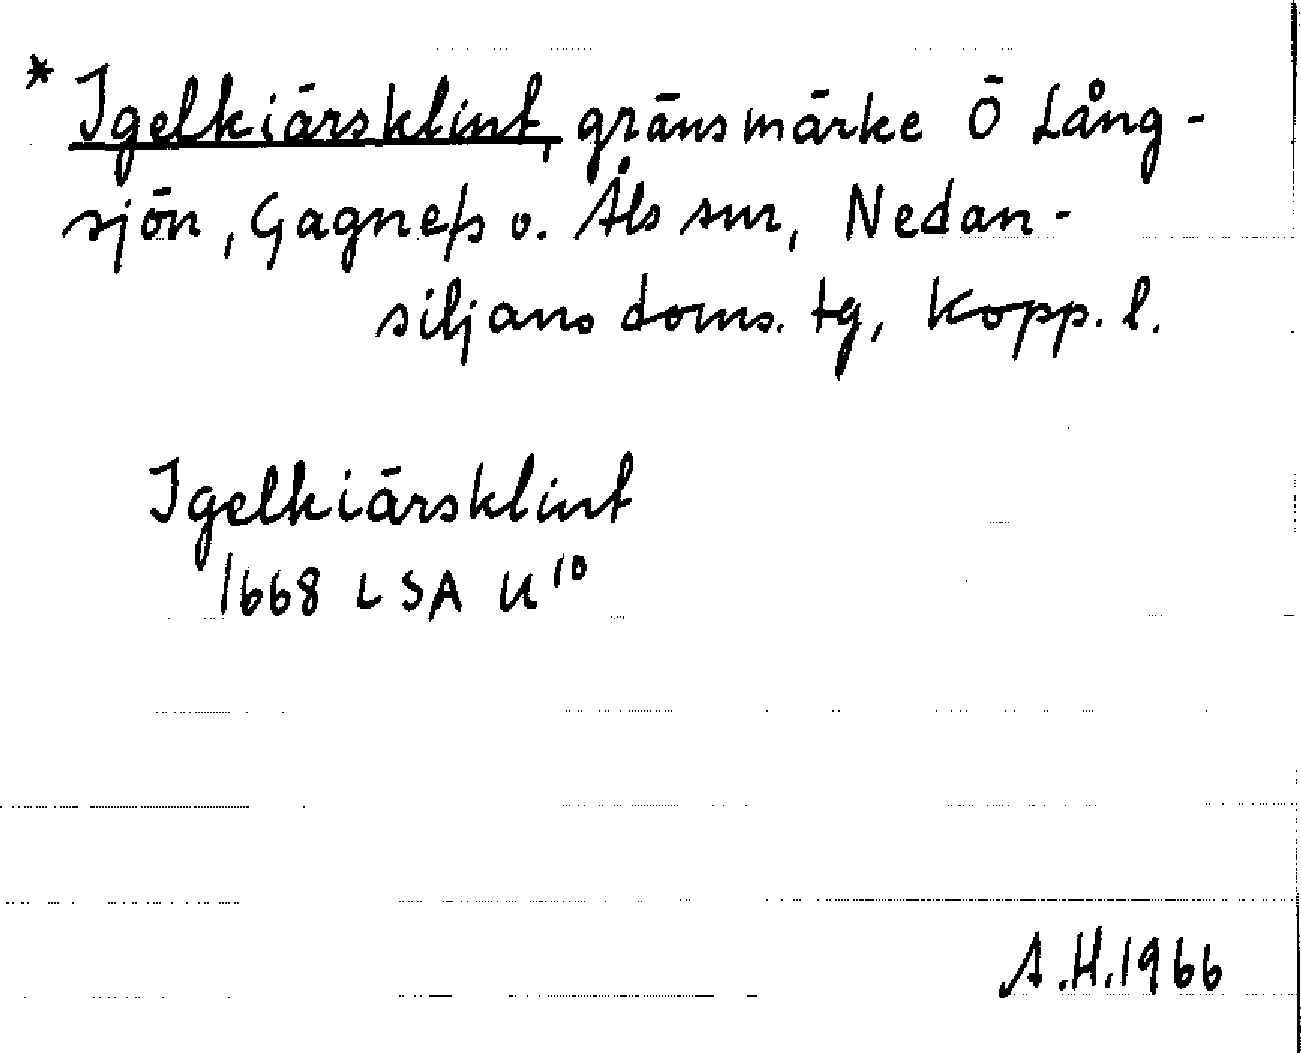 * Igelkiärsklint, gränsmärke Ö Lång-
sjön, Gagnefs o. Åls snr, Nedan-
siljans doms. tg, Kopp. l.
Igelkiärsklint
1668 LSA U¹⁰
A.H. 1966